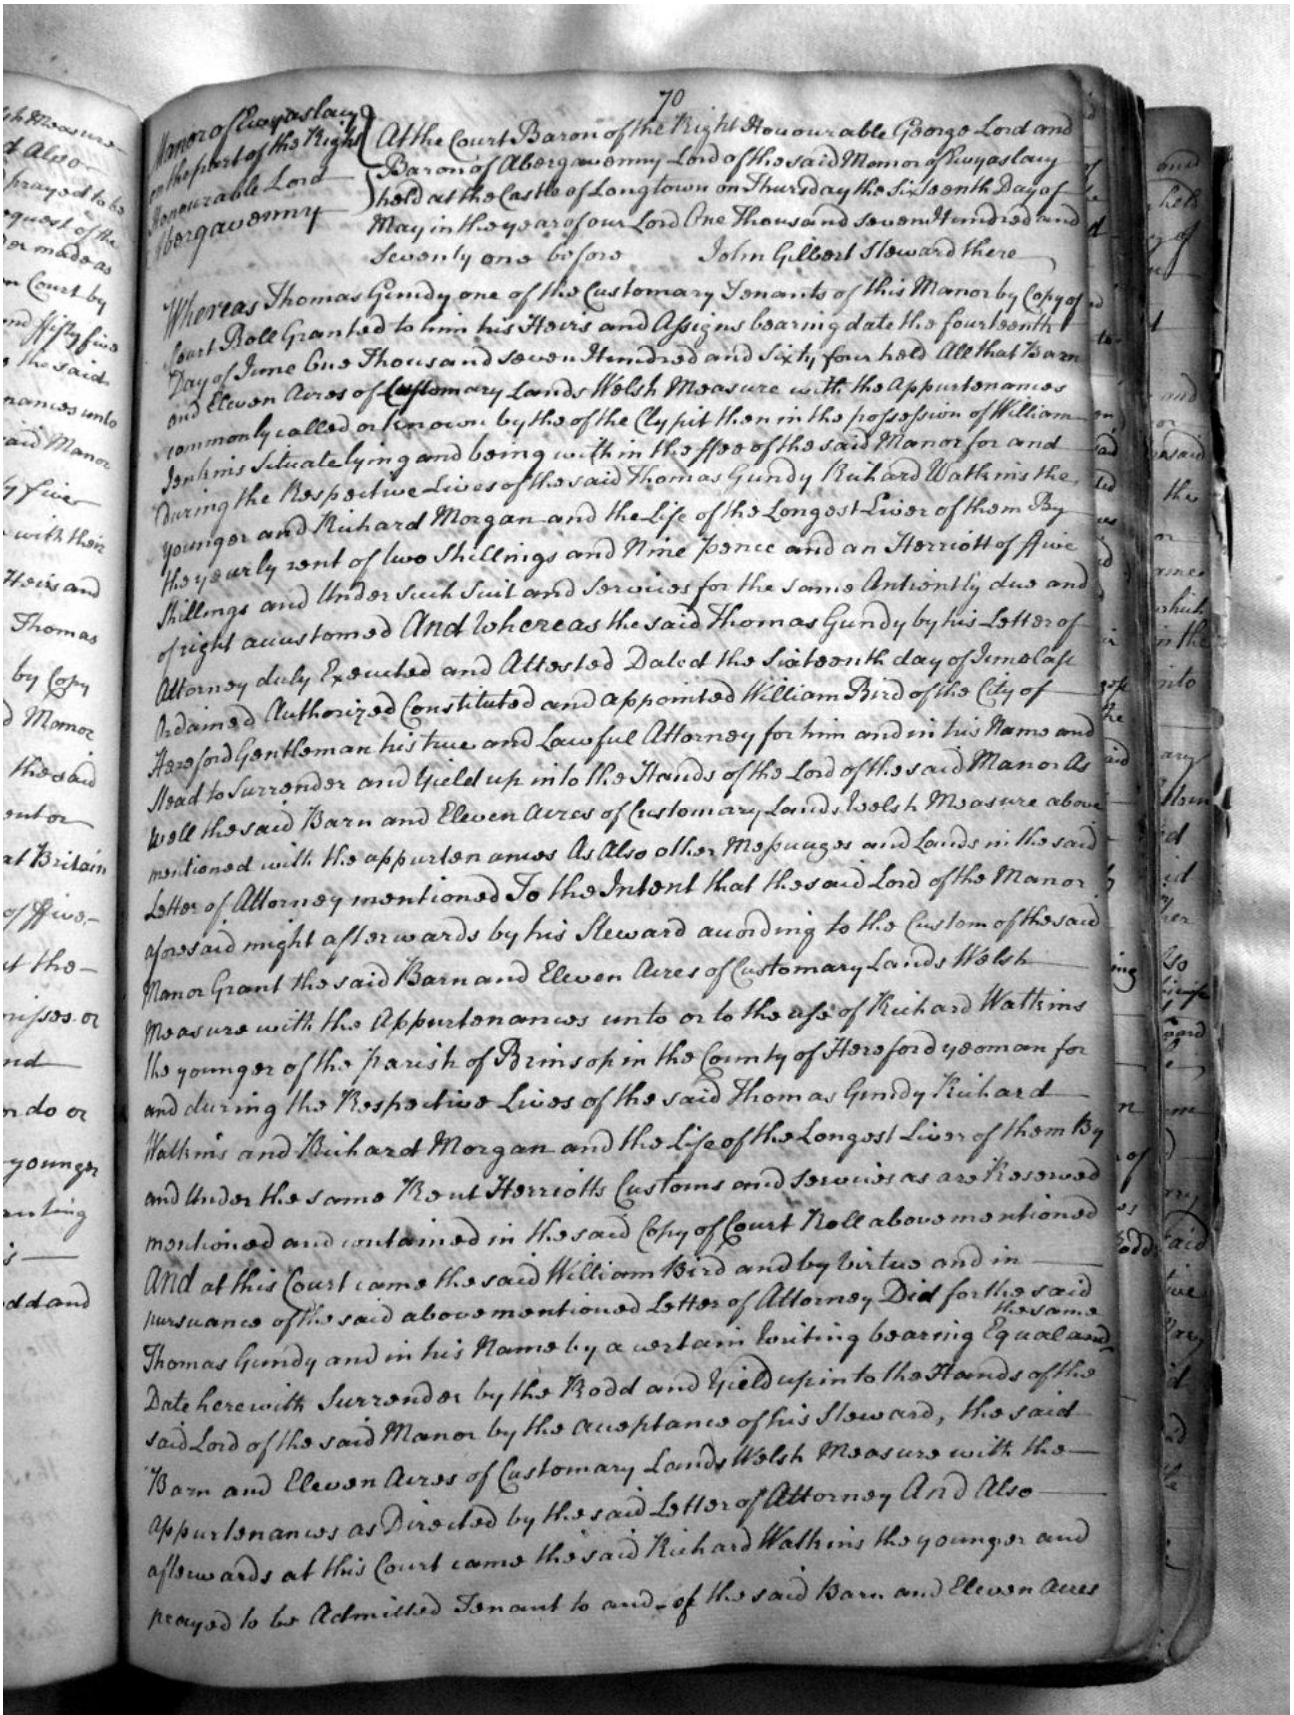 70
Manor of Ewyaslacy
on the part of the Right
Honourable Lord
Abergavenny
At the Court Baron of the Right Honourable George Lord and
Baron of Abergavenny Lord of the said Manor of Ewyaslacy
held at the Castle of Longtown on Thursday the Sixteenth Day of
May in the year of our Lord One Thousand seven Hundred and
Seventy one before John Gilbert Steward there
Whereas Thomas Gundy one of the Customary Tenants of this Manor by Copy of
Court Roll Granted to him his Heirs and Assigns bearing date the fourteenth
Day of June One Thousand seven Hundred and Sixty four held All that Barn
and Eleven Acres of Customary Lands Welsh Measure with the Appurtenances
commonly called or known by the of the Clypit then in the possession of William
Jenkins Situate lying and being within the ffee of the said Manor for and
during the Respective Lives of the said Thomas Gundy Richard Watkins the
younger and Richard Morgan and the Life of the Longest Liver of them By
the yearly rent of two Shillings and Nine pence and an Herriott of ffive
Shillings and Under such Suit and Services for the same Antiently due and
of right accustomed And Whereas the said Thomas Gundy by his Letter of
Attorney duly Executed and Attested Dated the Sixteenth day of June last
Ordained Authorized Constituted and appointed William Bird of the City of
Hereford Gentleman his true and Lawful Attorney for him and in his Name and
Stead to Surrender and Yield up into the Hands of the Lord of the said Manor As
well the said Barn and Eleven Acres of Customary Lands Welsh Measure above
mentioned with the appurtenances As Also other Messuages and Lands in the said
Letter of Attorney mentioned To the Intent that the said Lord of the Manor
aforesaid might afterwards by his Steward according to the Custom of the said
Manor Grant the said Barn and Eleven Acres of Customary Lands Welsh
Measure with the Appurtenances unto or to the use of Richard Watkins
the younger of the parish of Brinsop in the County of Hereford yeoman for
and during the Respective Lives of the said Thomas Gundy Richard
Watkins and Richard Morgan and the Life of the Longest Liver of them By
and Under the same Rent Herriotts Customs and services as are Reserved
mentioned and contained in the said Copy of Court Roll above mentioned
And at this Court came the said William Bird and by Virtue and in
pursuance of the said above mentioned Letter of Attorney Did for the said
the same
Thomas Gundy and in his Name by a certain Writing bearing Equal and
Date herewith Surrender by the Rodd and Yield up into the Hands of the
said Lord of the said Manor by the acceptance of his Steward, the said
Barn and Eleven Acres of Customary Lands Welsh Measure with the
appurtenances as Directed by the said Letter of Attorney And Also
afterwards at this Court came the said Richard Watkins the younger and
prayed to be Admitted Tenant to and of the said Barn and Eleven Acres